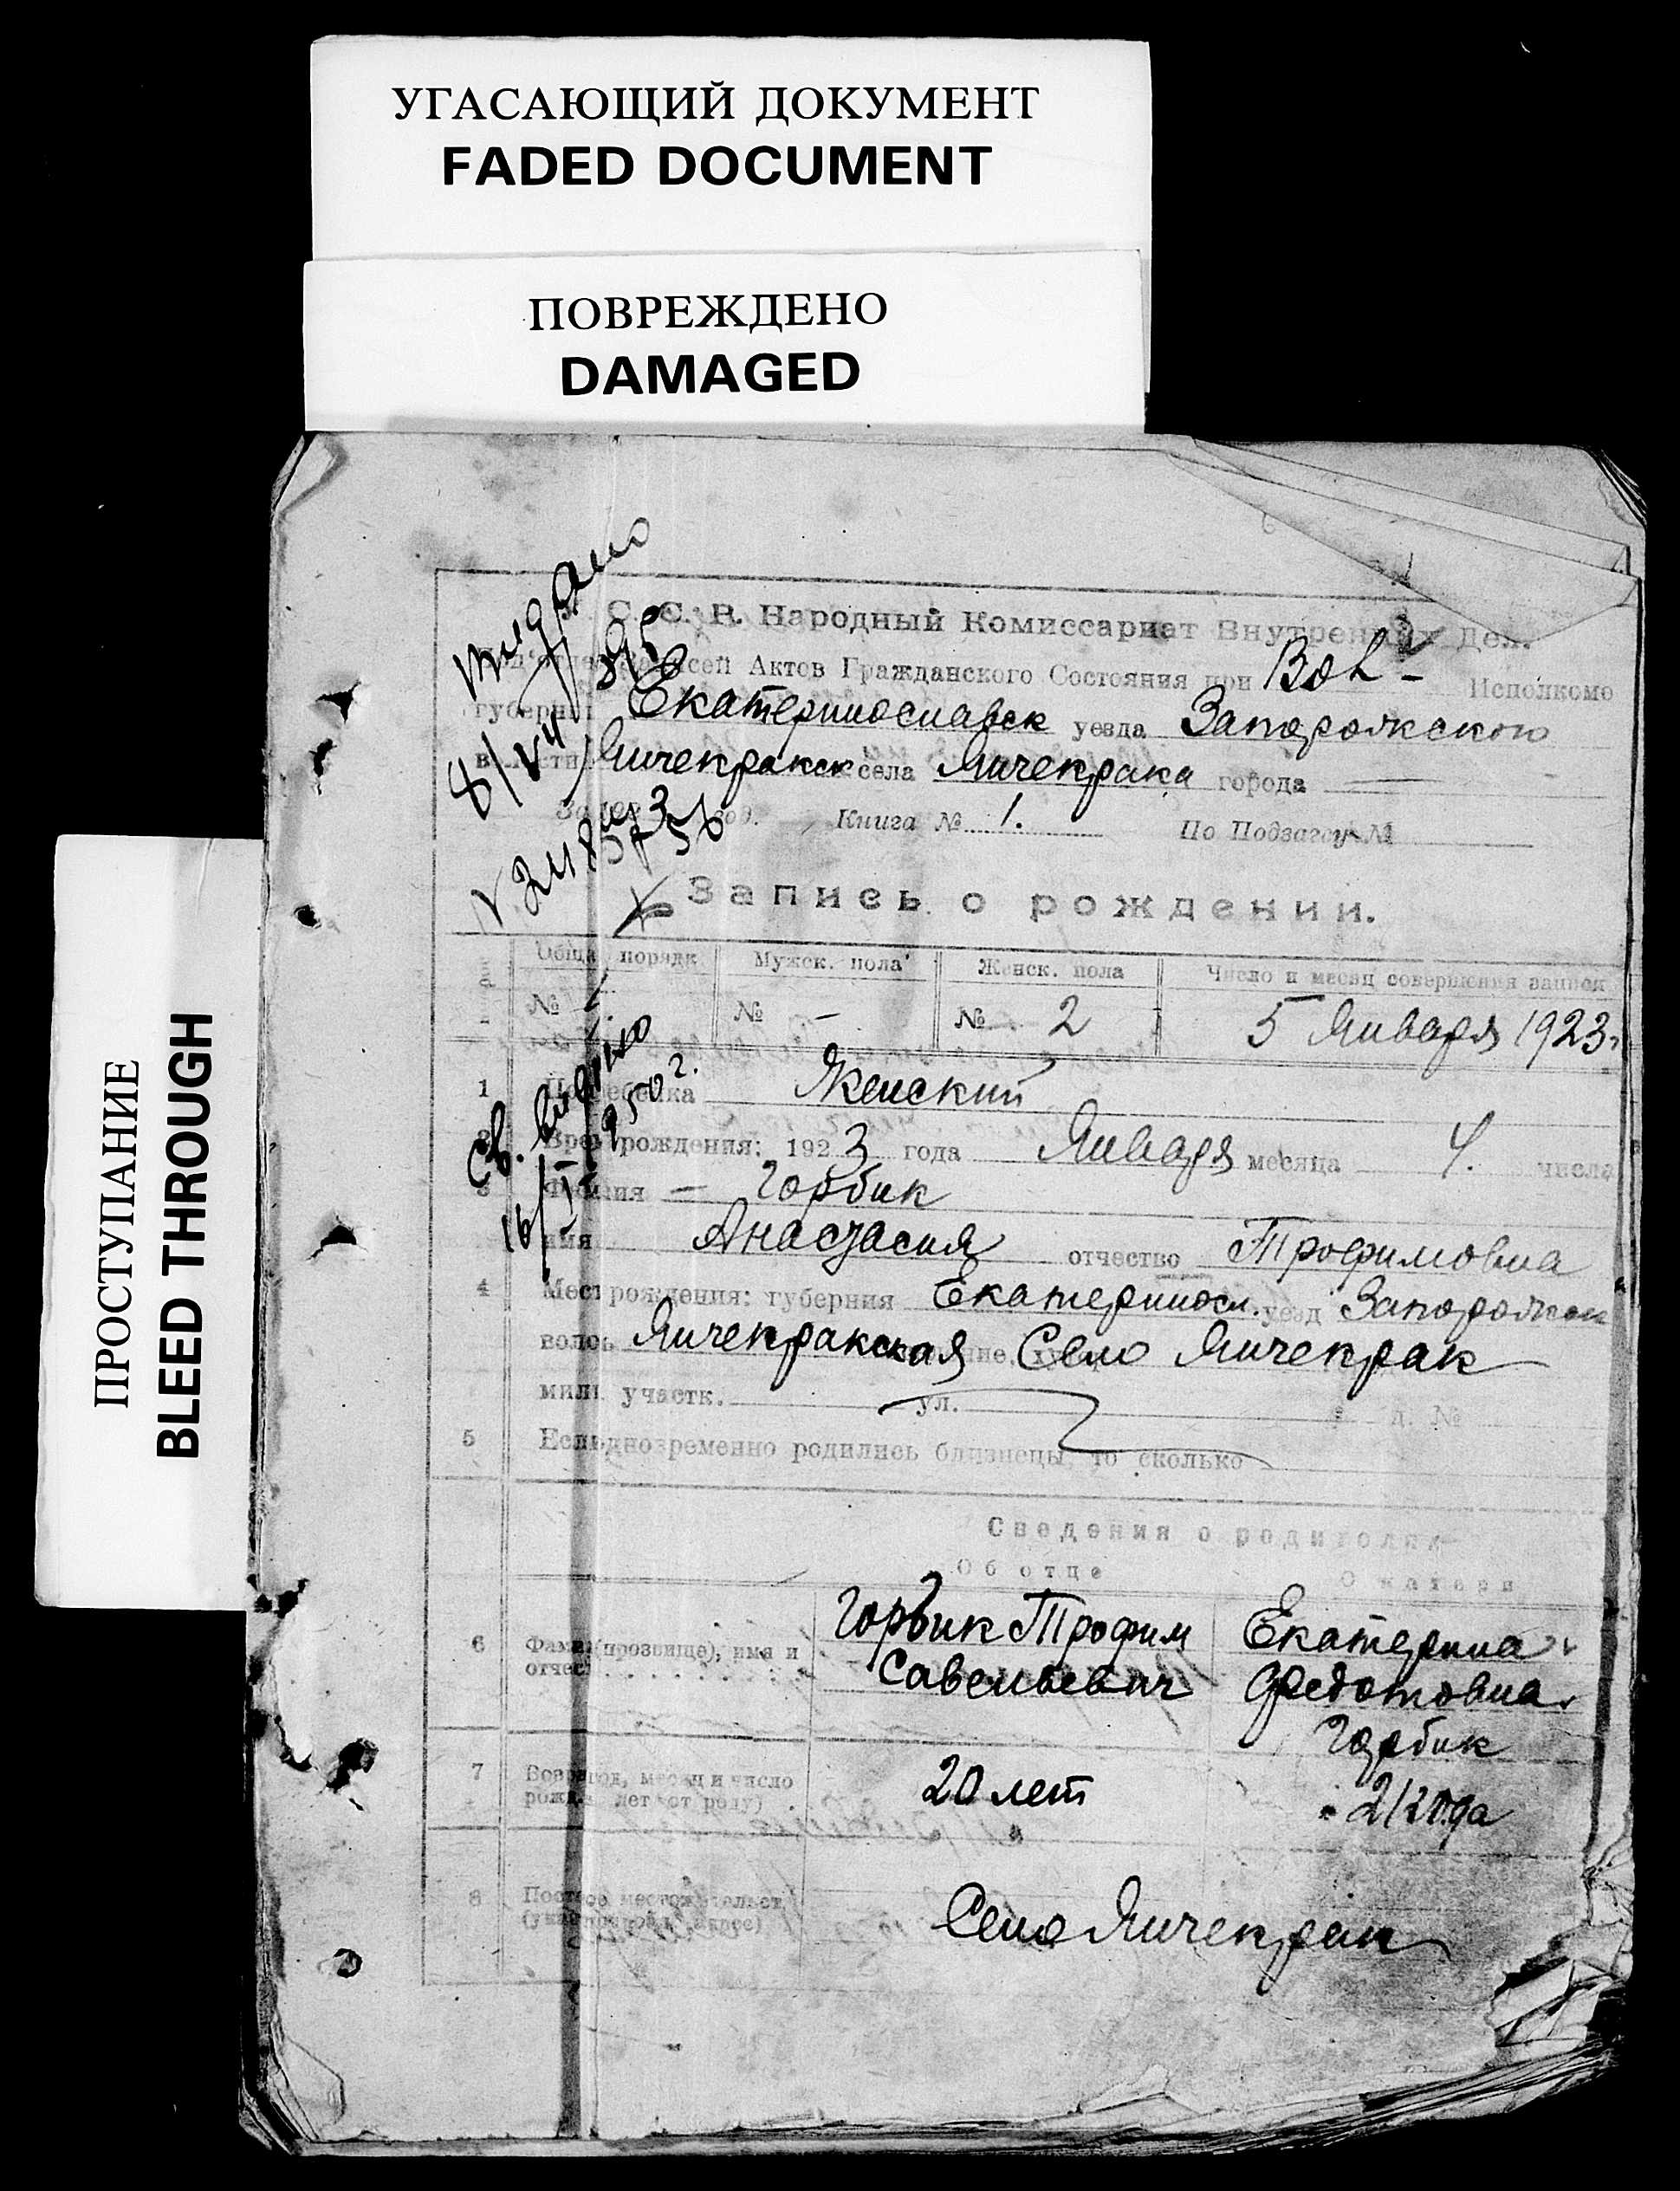 УГАСАЮЩИЙ ДОКУМЕНТ
FADED DOCUMENT
ПОВРЕЖДЕНО
DAMAGED
ПРОСТУПАНИЕ
BLEED THROUGH
С. С. Р. Народный Комиссариат Внутренних Дел.
Записей Актов Гражданского Состояния при Вол- Исполкоме
губерни Екатеринославск уезда Запорожского
Янчекракск села Янчекрака города
Книга № 1. По Подзагсу №
Запись о рождении.
Общ порядк Мужск. пола Женск. пола Число и месяц совершения записи
№ 1. № - № 2 5 Января 1923 г.
1 Пол ребенка Женский
2 Время рождения: 1923 года Января месяца 4. числа
3 Фамилия - Горбик
имя Анастасия отчество Трофимовна
4 Мест рождения: губерния Екатериносл. уезд Запорожск
волос Янчекракская Село Янчекрак
мил. участк. ул. д. №
5 Если одновременно родились близнецы, то сколько
Сведения о родителях
Об отце О матери
6 Фами (прозвище), имя и отчес Горбик Трофим Савельевич Екатерина Федотовна Горбик
7 Возра год, месяц и число рожд. лет от роду) 20 лет 21 года
8 Постоян местожительст Село Янчекрак
Св. выдано
16/II 1950 г.